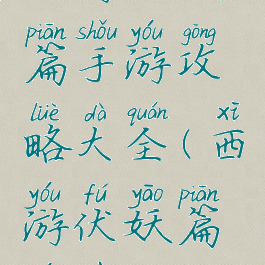 piān shǒu yóu gōng
篇手游攻
lüè dà quán xī
略大全(西
yóu fú yāo piān
游伏妖篇